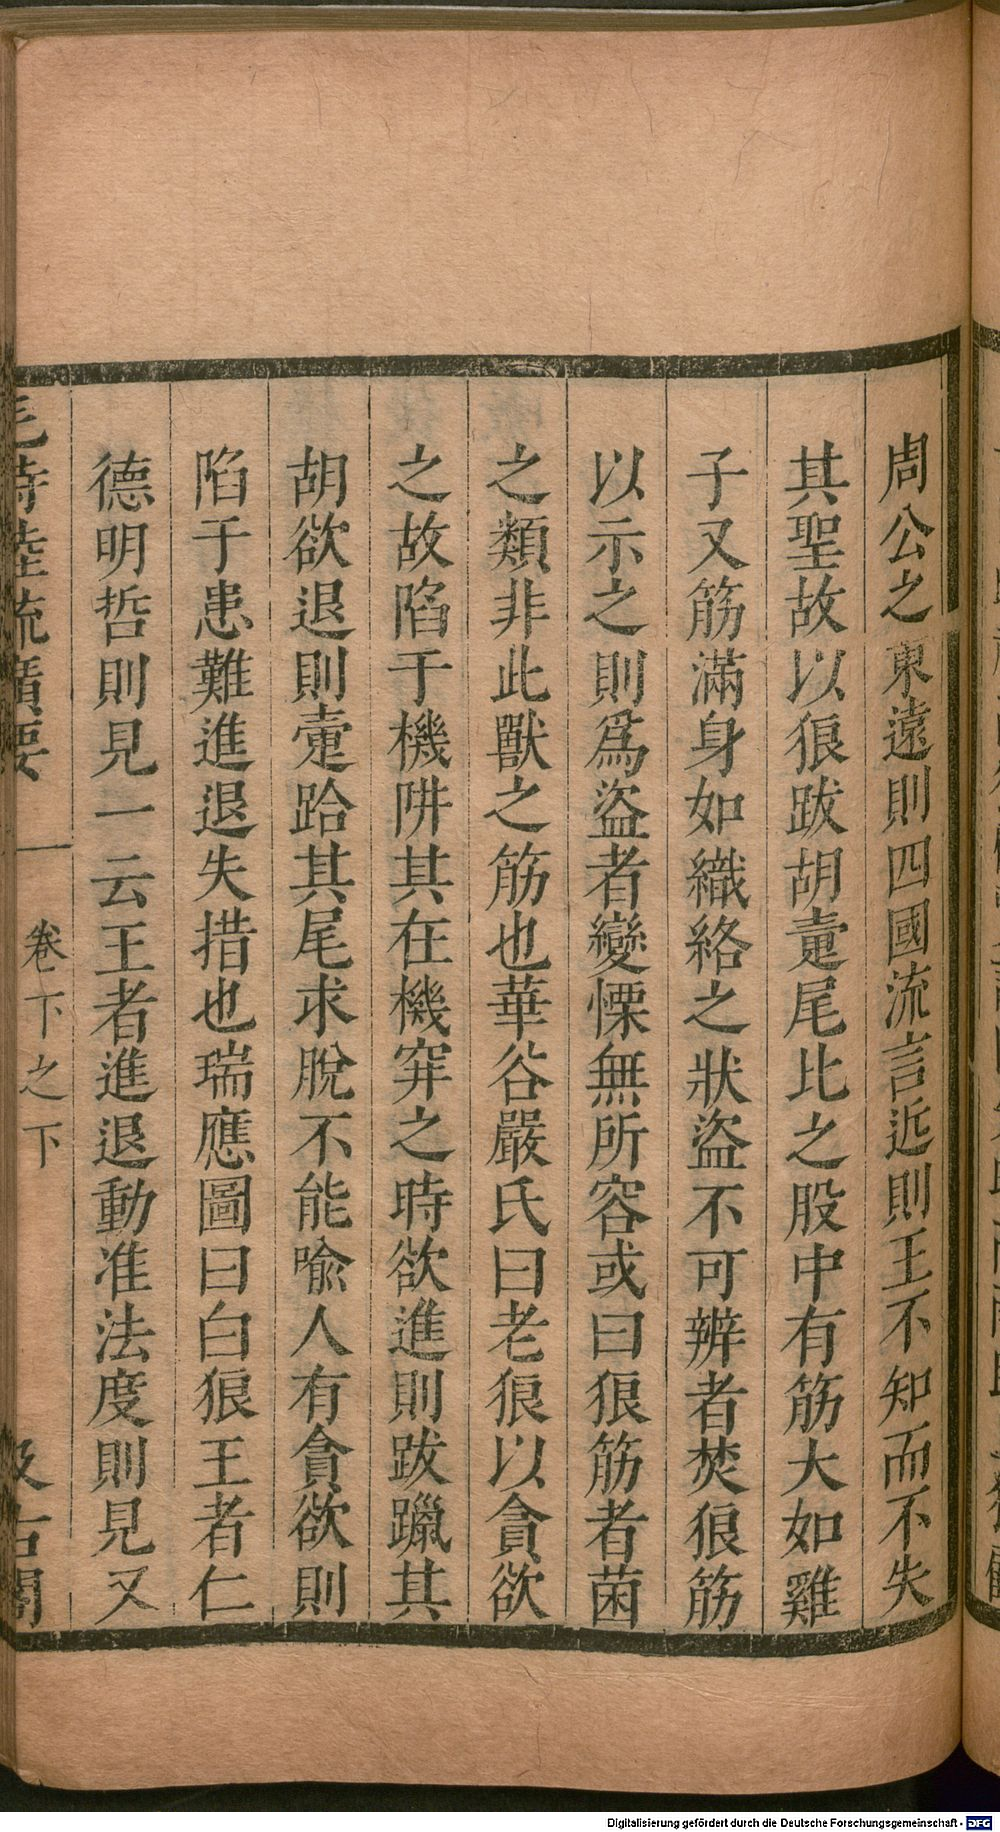 周公之東遠則四國流言近則王不知而不失
其聖故以狼跋胡疐尾比之股中有筋大如雞
子又筋滿身如織絡之狀盜不可辨者焚狼筋
以示之則爲盜者變慄無所容或曰狼筋者菌
之類非此獸之筋也華谷嚴氏曰老狼以貪欲
之故陷于機阱其在機穽之時欲進則跋躐其
胡欲退則疐跲其尾求脫不能喻人有貪欲則
陷于患難進退失措也瑞應圖曰白狼王者仁
德明哲則見一云王者進退動准法度則見又
毛詩陸疏廣要 卷下之下 汲古閣
Digitalisierung gefördert durch die Deutsche Forschungsgemeinschaft - DFG